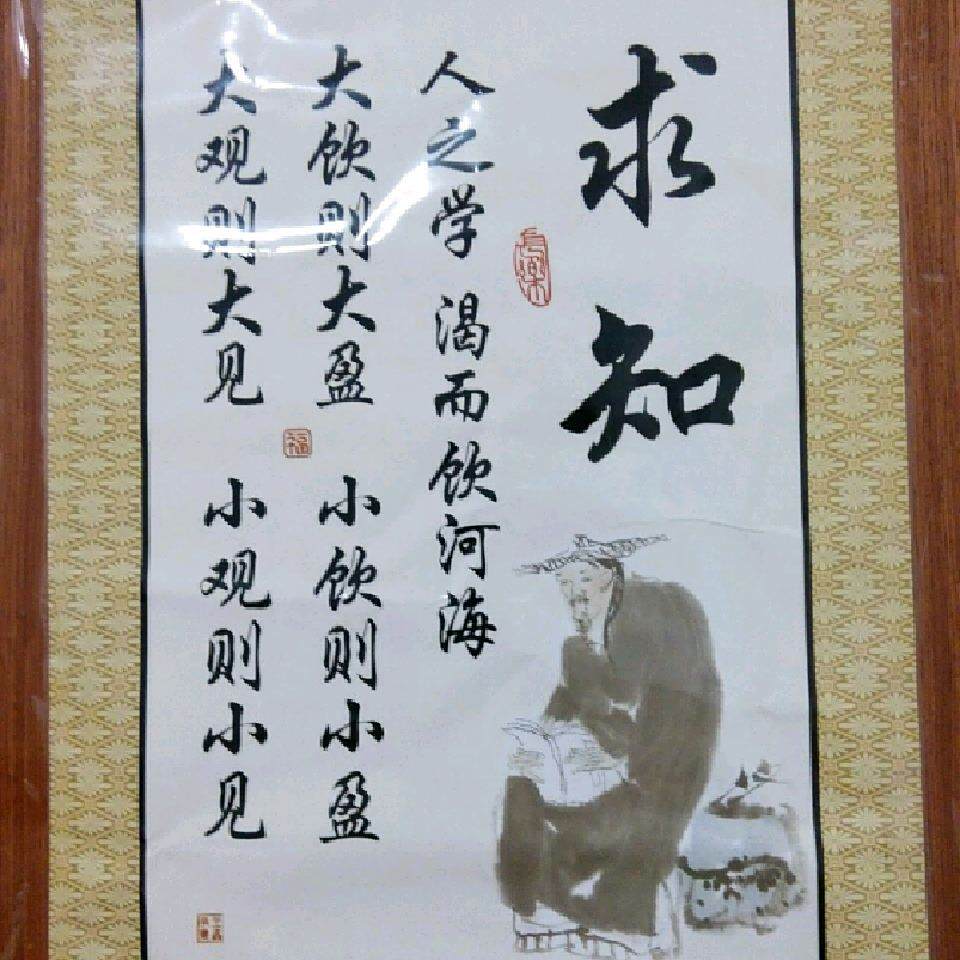 求知
長樂
人之学 渴而饮河海
大饮则大盈 小饮则小盈
福
大观则大见 小观则小见